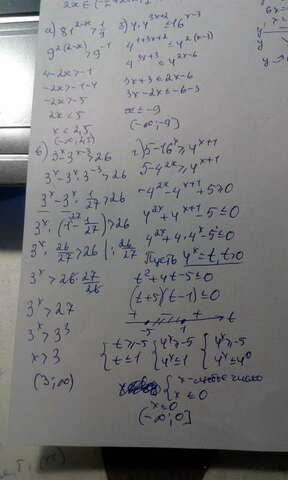 2x ∈
а) 81^{2-x} > 1/9
9^{2(2-x)} > 9^{-1}
4-2x>-1
-2x>-1-4
-2x>-5
2x<5
x<2,5
(-∞; 2,5)
б) 4·4^{3x+2} ≤ 16^{x-3}
4^{1+3x+2} ≤ 4^{2(x-3)}
4^{3x+3} ≤ 4^{2x-6}
3x+3 ≤ 2x-6
3x-2x ≤ -6-3
x ≤ -9
(-∞; -9]
в) 3^x-3^{x-3} > 26
3^x-3^x·3^{-3} > 26
3^x-3^x·1/27 > 26
3^x·(1-1/27) > 26
3^x·26/27 > 26 |: 26/27
3^x > 26·27/26
3^x > 27
3^x > 3^3
x > 3
(3; ∞)
г) 5-16^x ≥ 4^{x+1}
5-4^{2x} ≥ 4^{x+1}
-4^{2x}-4^{x+1}+5 ≥ 0
4^{2x}+4^{x+1}-5 ≤ 0
4^{2x}+4·4^x-5 ≤ 0
Пусть 4^x=t, t>0
t^2+4t-5 ≤ 0
(t+5)(t-1) ≤ 0
+ - + t
-5 1
{t ≥ -5 {4^x ≥ -5 {4^x ≥ -5
t ≤ 1 4^x ≤ 1 4^x ≤ 4^0
{x-любое число
x ≤ 0
x ≤ 0
(-∞; 0]